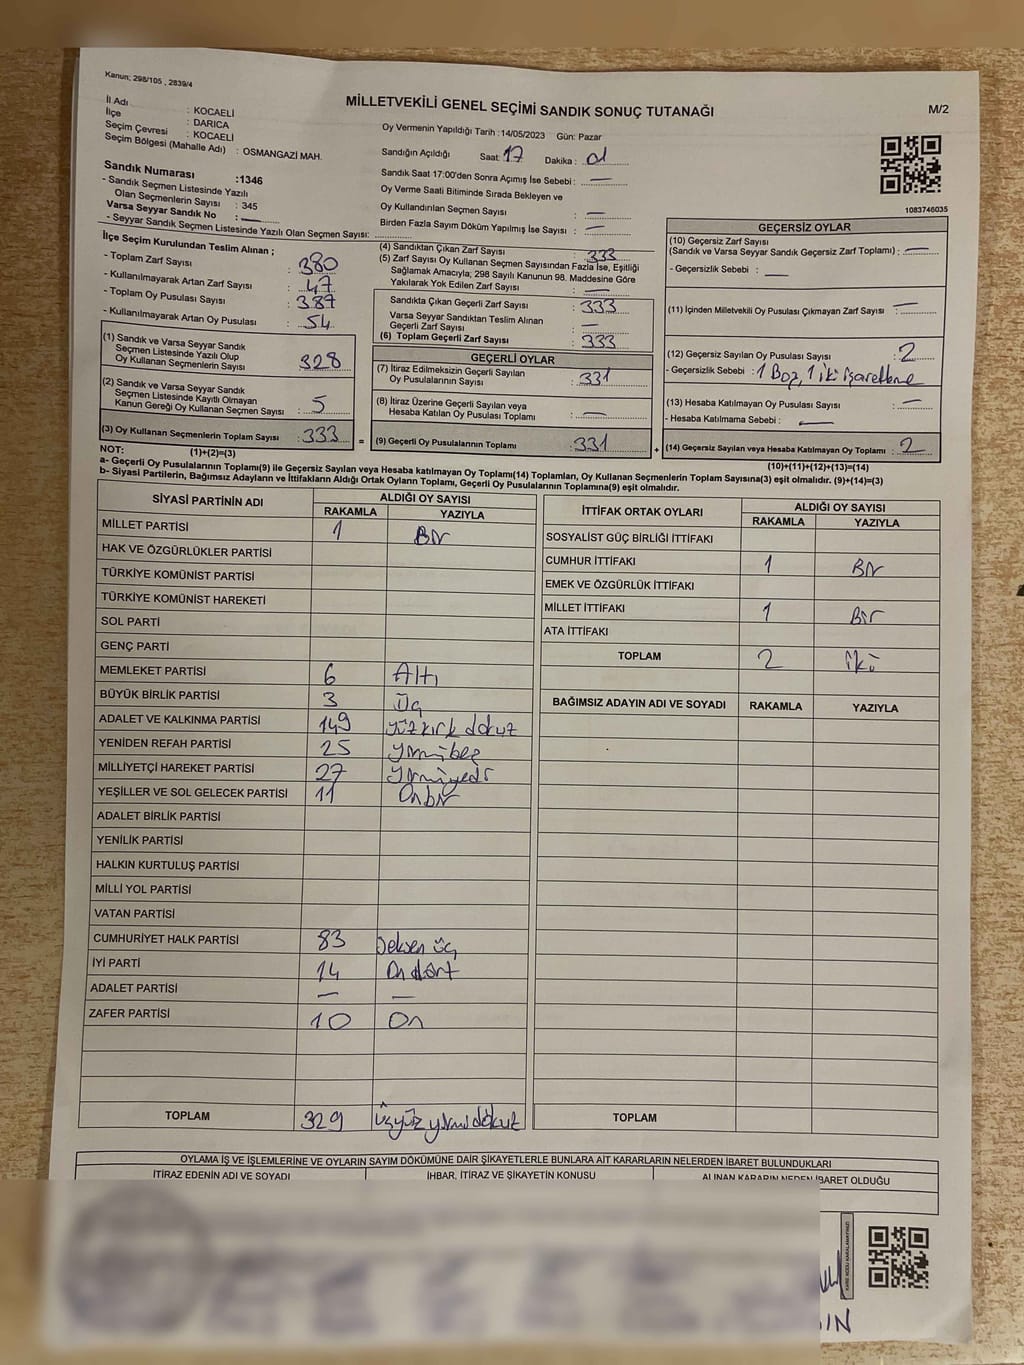 Kanun; 298/105 , 2839/4
MİLLETVEKİLİ GENEL SEÇİMİ SANDIK SONUÇ TUTANAĞI
M/2
İl Adı : KOCAELİ
İlçe : DARICA
Seçim Çevresi : KOCAELİ
Seçim Bölgesi (Mahalle Adı) : OSMANGAZİ MAH.
Sandık Numarası :1346
- Sandık Seçmen Listesinde Yazılı
Olan Seçmenlerin Sayısı : 345
Varsa Seyyar Sandık No : —
- Seyyar Sandık Seçmen Listesinde Yazılı Olan Seçmen Sayısı:
Oy Vermenin Yapıldığı Tarih : 14/05/2023 Gün: Pazar
Sandığın Açıldığı Saat: 17 Dakika :
Sandık Saat 17:00'den Sonra Açımış İse Sebebi : —
Oy Verme Saati Bitiminde Sırada Bekleyen ve
Oy Kullandırılan Seçmen Sayısı : —
Birden Fazla Sayım Döküm Yapılmış İse Sayısı : —
1083746035
İlçe Seçim Kurulundan Teslim Alınan ;
- Toplam Zarf Sayısı : 380
- Kullanılmayarak Artan Zarf Sayısı : 47
- Toplam Oy Pusulası Sayısı : 387
- Kullanılmayarak Artan Oy Pusulası : 54
(1) Sandık ve Varsa Seyyar Sandık
Seçmen Listesinde Yazılı Olup
Oy Kullanan Seçmenlerin Sayısı : 328
(2) Sandık ve Varsa Seyyar Sandık
Seçmen Listesinde Kayıtlı Olmayan
Kanun Gereği Oy Kullanan Seçmen Sayısı : 5
(3) Oy Kullanan Seçmenlerin Toplam Sayısı : 333
(1)+(2)=(3)
(4) Sandıktan Çıkan Zarf Sayısı : 333
(5) Zarf Sayısı Oy Kullanan Seçmen Sayısından Fazla İse, Eşitliği
Sağlamak Amacıyla; 298 Sayılı Kanunun 98. Maddesine Göre
Yakılarak Yok Edilen Zarf Sayısı : —
Sandıkta Çıkan Geçerli Zarf Sayısı : 333
Varsa Seyyar Sandıktan Teslim Alınan
Geçerli Zarf Sayısı : —
(6) Toplam Geçerli Zarf Sayısı : 333
GEÇERLİ OYLAR
(7) İtiraz Edilmeksizin Geçerli Sayılan
Oy Pusulalarının Sayısı : 331
(8) İtiraz Üzerine Geçerli Sayılan veya
Hesaba Katılan Oy Pusulası Toplamı : —
= (9) Geçerli Oy Pusulalarının Toplamı : 331
GEÇERSİZ OYLAR
(10) Geçersiz Zarf Sayısı
(Sandık ve Varsa Seyyar Sandık Geçersiz Zarf Toplamı) : —
- Geçersizlik Sebebi : —
(11) İçinden Milletvekili Oy Pusulası Çıkmayan Zarf Sayısı : —
(12) Geçersiz Sayılan Oy Pusulası Sayısı : 2
- Geçersizlik Sebebi : 1 Boş, 1 iki işaretleme
(13) Hesaba Katılmayan Oy Pusulası Sayısı : —
- Hesaba Katılmama Sebebi : —
+ (14) Geçersiz Sayılan veya Hesaba Katılmayan Oy Toplamı : 2
(10)+(11)+(12)+(13)=(14)
NOT:
a- Geçerli Oy Pusulalarının Toplamı(9) ile Geçersiz Sayılan veya Hesaba katılmayan Oy Toplamı(14) Toplamları, Oy Kullanan Seçmenlerin Toplam Sayısına(3) eşit olmalıdır. (9)+(14)=(3)
b- Siyasi Partilerin, Bağımsız Adayların ve İttifakların Aldığı Ortak Oyların Toplamı, Geçerli Oy Pusulalarının Toplamına(9) eşit olmalıdır.
SİYASİ PARTİNİN ADI ALDIĞI OY SAYISI
RAKAMLA YAZIYLA
MİLLET PARTİSİ 1 Bir
HAK VE ÖZGÜRLÜKLER PARTİSİ
TÜRKİYE KOMÜNİST PARTİSİ
TÜRKİYE KOMÜNİST HAREKETİ
SOL PARTİ
GENÇ PARTİ
MEMLEKET PARTİSİ 6 Altı
BÜYÜK BİRLİK PARTİSİ 3 Üç
ADALET VE KALKINMA PARTİSİ 149 yüzkırk dokuz
YENİDEN REFAH PARTİSİ 25 yirmibeş
MİLLİYETÇİ HAREKET PARTİSİ 27 yirmiyedi
YEŞİLLER VE SOL GELECEK PARTİSİ 11 Onbir
ADALET BİRLİK PARTİSİ
YENİLİK PARTİSİ
HALKIN KURTULUŞ PARTİSİ
MİLLİ YOL PARTİSİ
VATAN PARTİSİ
CUMHURİYET HALK PARTİSİ 83 Seksen üç
İYİ PARTİ 14 On dört
ADALET PARTİSİ — —
ZAFER PARTİSİ 10 On
TOPLAM 329 üçyüz yirmi dokuz
İTTİFAK ORTAK OYLARI ALDIĞI OY SAYISI
RAKAMLA YAZIYLA
SOSYALİST GÜÇ BİRLİĞİ İTTİFAKI
CUMHUR İTTİFAKI 1 Bir
EMEK VE ÖZGÜRLÜK İTTİFAKI
MİLLET İTTİFAKI 1 Bir
ATA İTTİFAKI
TOPLAM 2 iki
BAĞIMSIZ ADAYIN ADI VE SOYADI RAKAMLA YAZIYLA
TOPLAM
OYLAMA İŞ VE İŞLEMLERİNE VE OYLARIN SAYIM DÖKÜMÜNE DAİR ŞİKAYETLERLE BUNLARA AİT KARARLARIN NELERDEN İBARET BULUNDUKLARI
İTİRAZ EDENİN ADI VE SOYADI İHBAR, İTİRAZ VE ŞİKAYETİN KONUSU ALINAN KARARIN NEDEN İBARET OLDUĞU